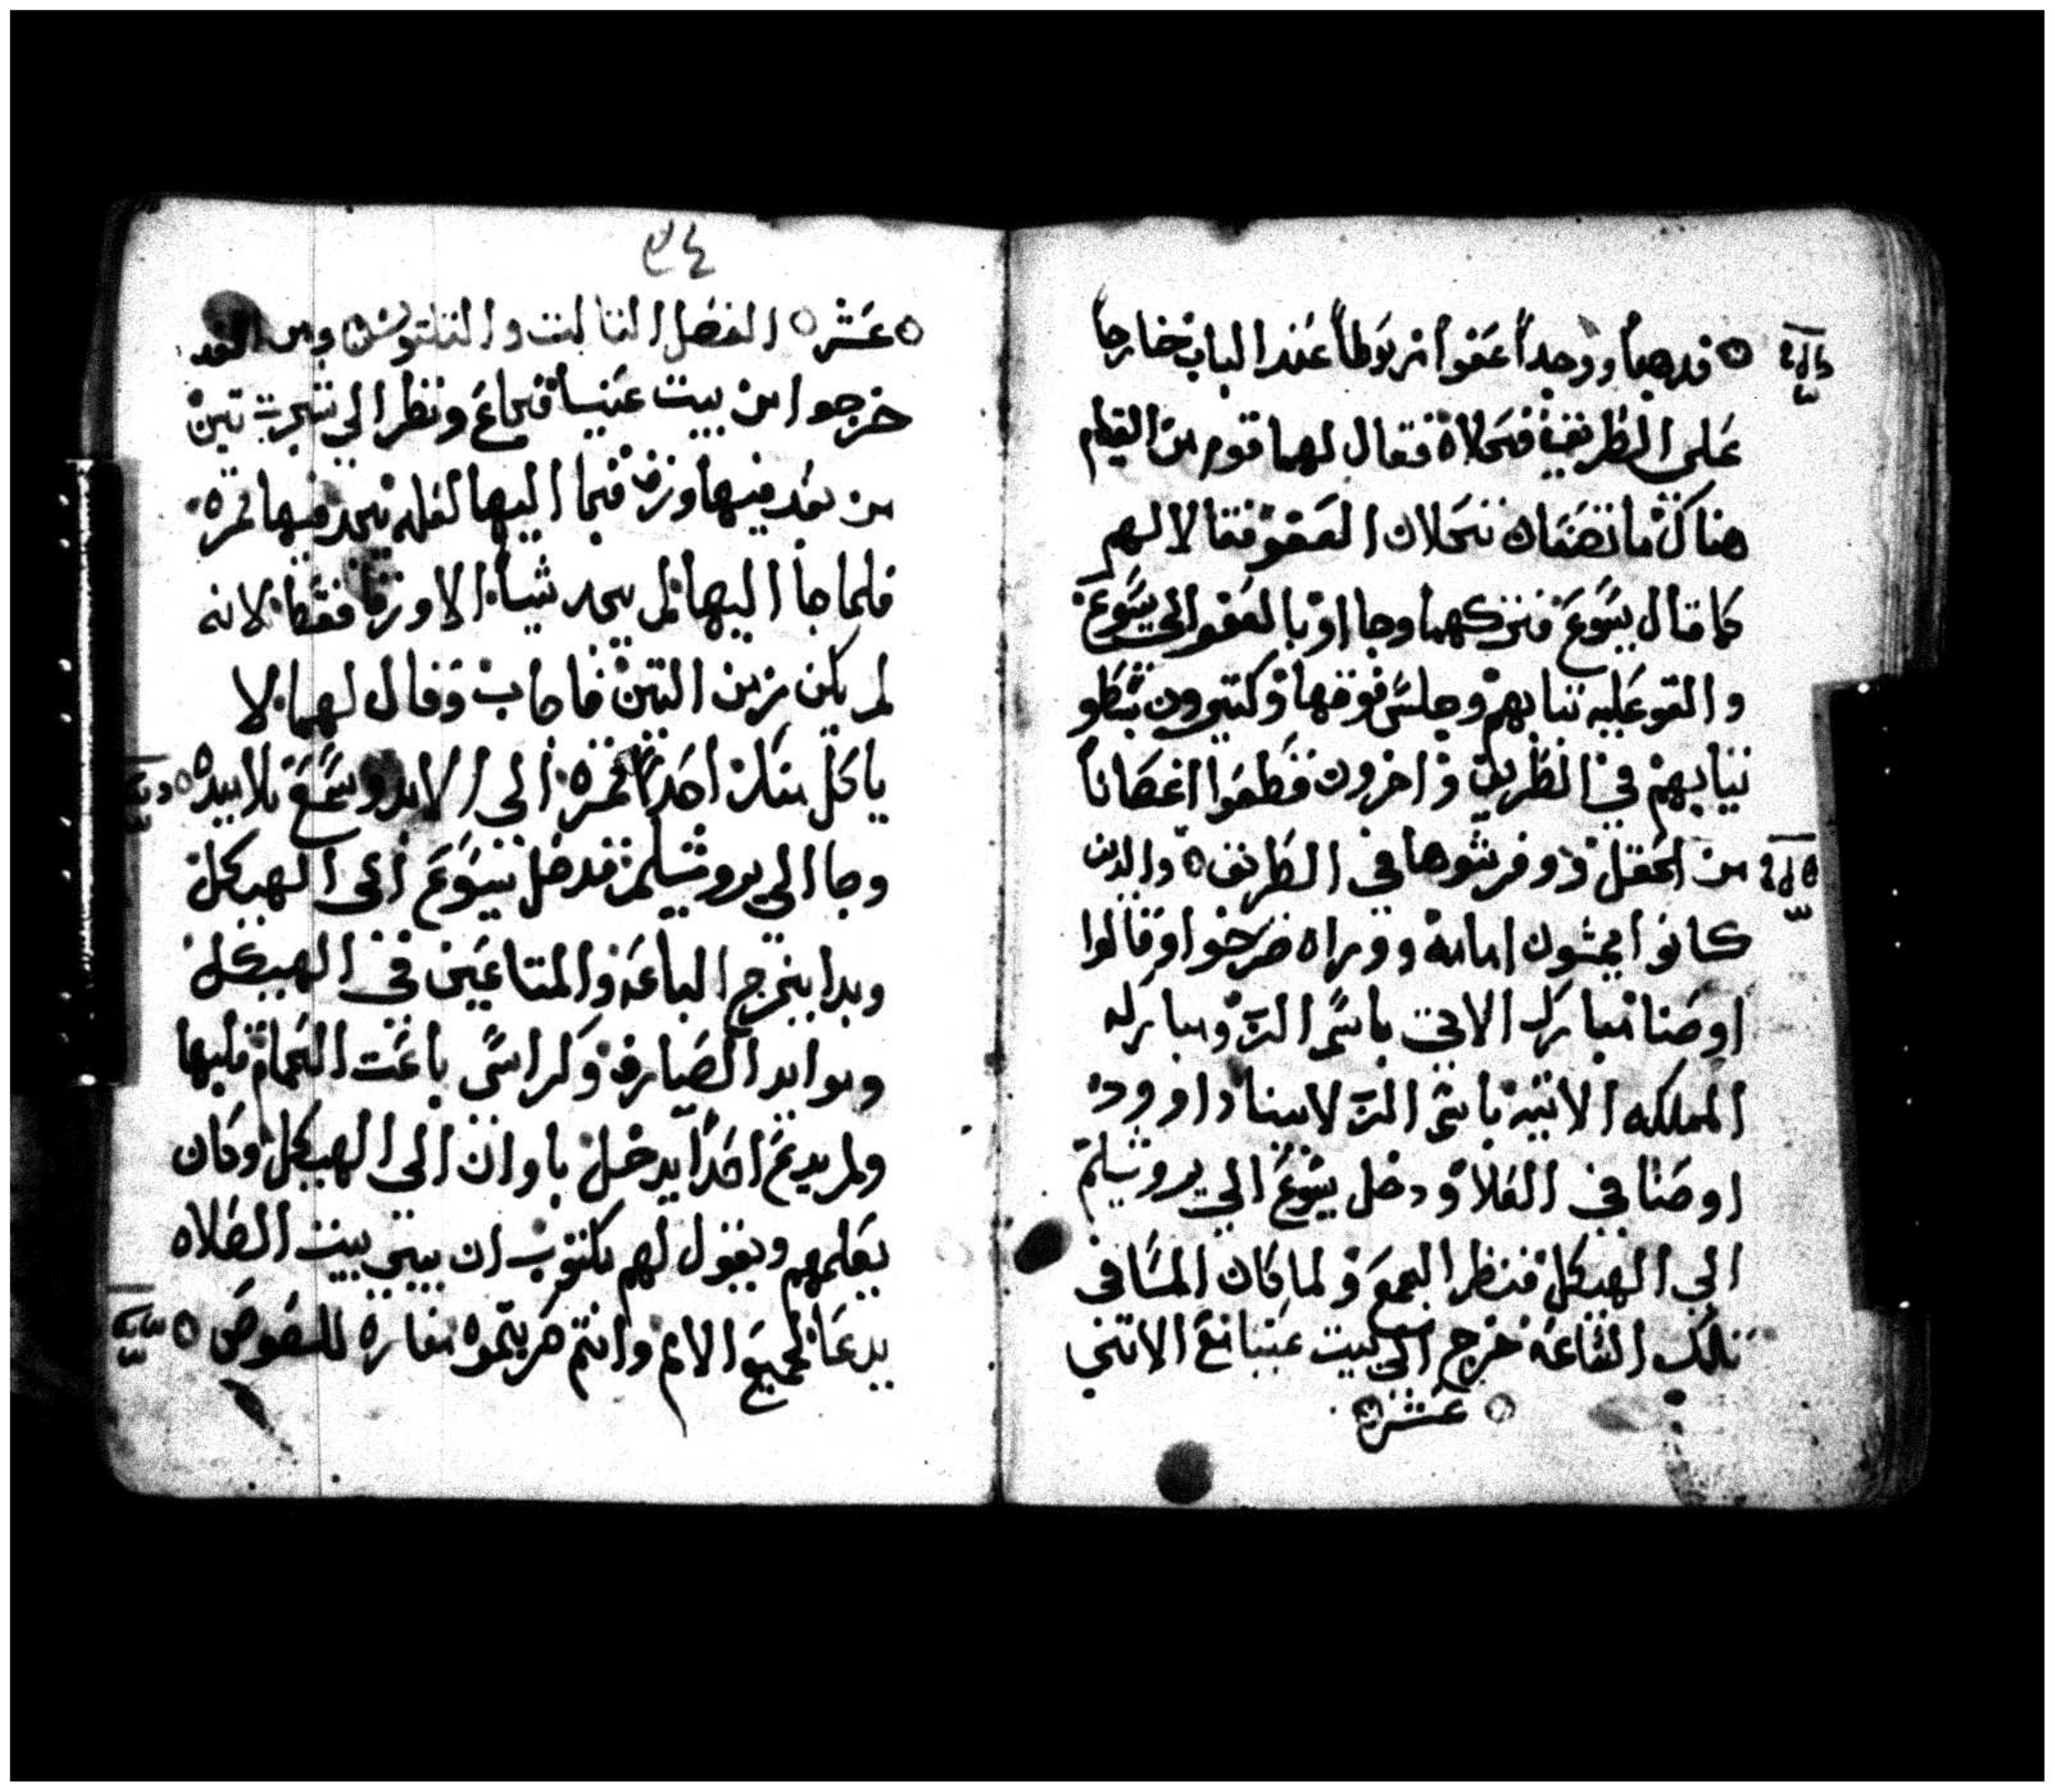 فدهبا ووجدا عفوا مربوطا عند الباب خارجا
على الطريق فحلاه فقال لهما قوم من القيام
هناك ما تصنعان تحلان العفو فقالا لهم
كما قال يسوع فتركهما وجااو بالعفو الي يسوع
والقو عليه تيابهم وجلس فوقها وكتيرون بسطو
تيابهم في الطريق واخرون قطعوا اغصانا
من الحقل وفرشوها في الطريق والدين
كانوا يمشون امامه ووراه صرخوا وقالوا
اوصنا مبارك الاتي باسم الرب ومباركه
المملكه الاتيه باسم الرب لابينا داوود
اوصنا في العلا ودخل يسوع الي يروشليم
الي الهيكل فنظر الجميع ولما كان المسا في
تلك الساعه خرج الي بيت عنيا مع الاتني
عشر
٣٤
عشر الفصل التالت والتلتون ومن الغد
خرجوا من بيت عنيا فجاع ونظر الي شجرت تين
من بعد فيها ورق فجا اليها لعله يجد فيها تمره
فلما جا اليها لم يجد شيا الا ورقا فقط لانه
لم يكن زمن التين فاجاب وقال لها لا
ياكل منك احدا تمره الي الابد وسمع تلاميده
وجا الي يروشليم فدخل يسوع الي الهيكل
وبدا يخرج الباعه والمتاعين في الهيكل
وموايد الصيارف وكراسي باعت الحمام قلبها
ولم يدع احدا يدخل باوان الي الهيكل وكان
يعلمهم ويقول لهم مكتوب ان بيتي بيت الصلاه
يدعا لجميع الامم وانتم صريتموه مغاره للصوص